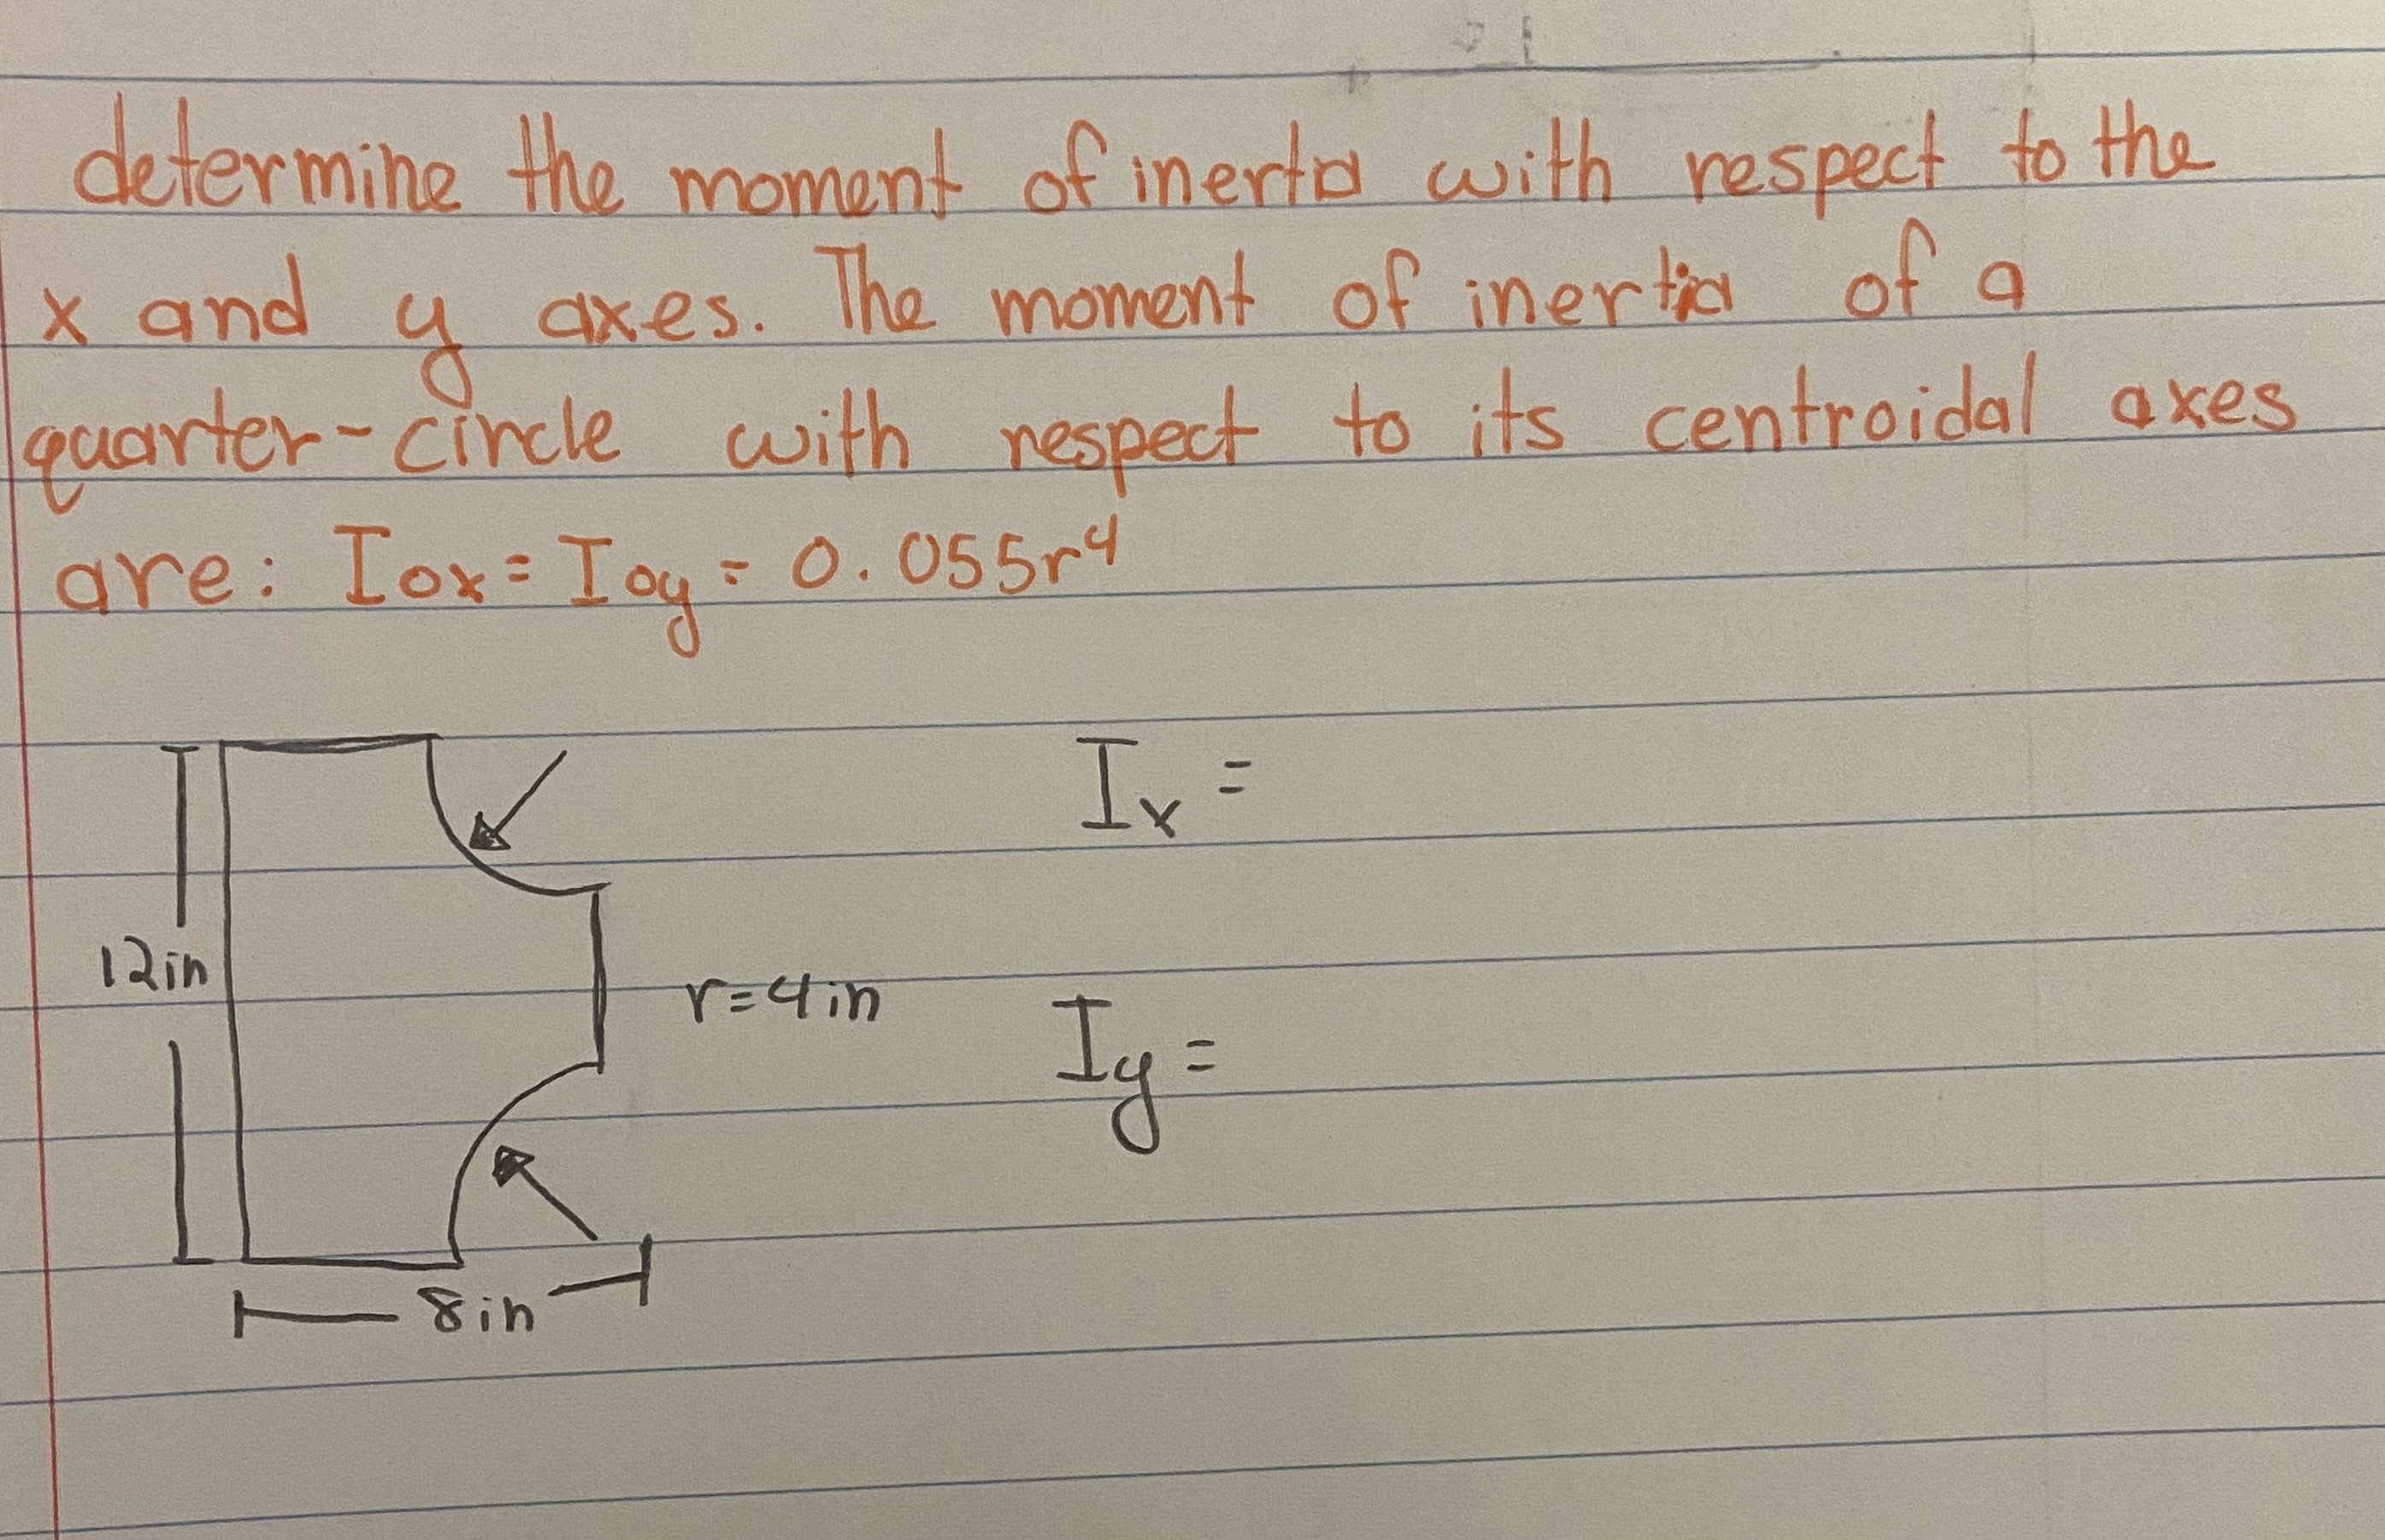 determine the moment of inerta with respect to the
x and y axes. The moment of inertia of a
quarter-circle with respect to its centroidal axes
are: Iox = Ioy = 0.055r⁴
Ix =
12in
r=4in
Iy =
8in